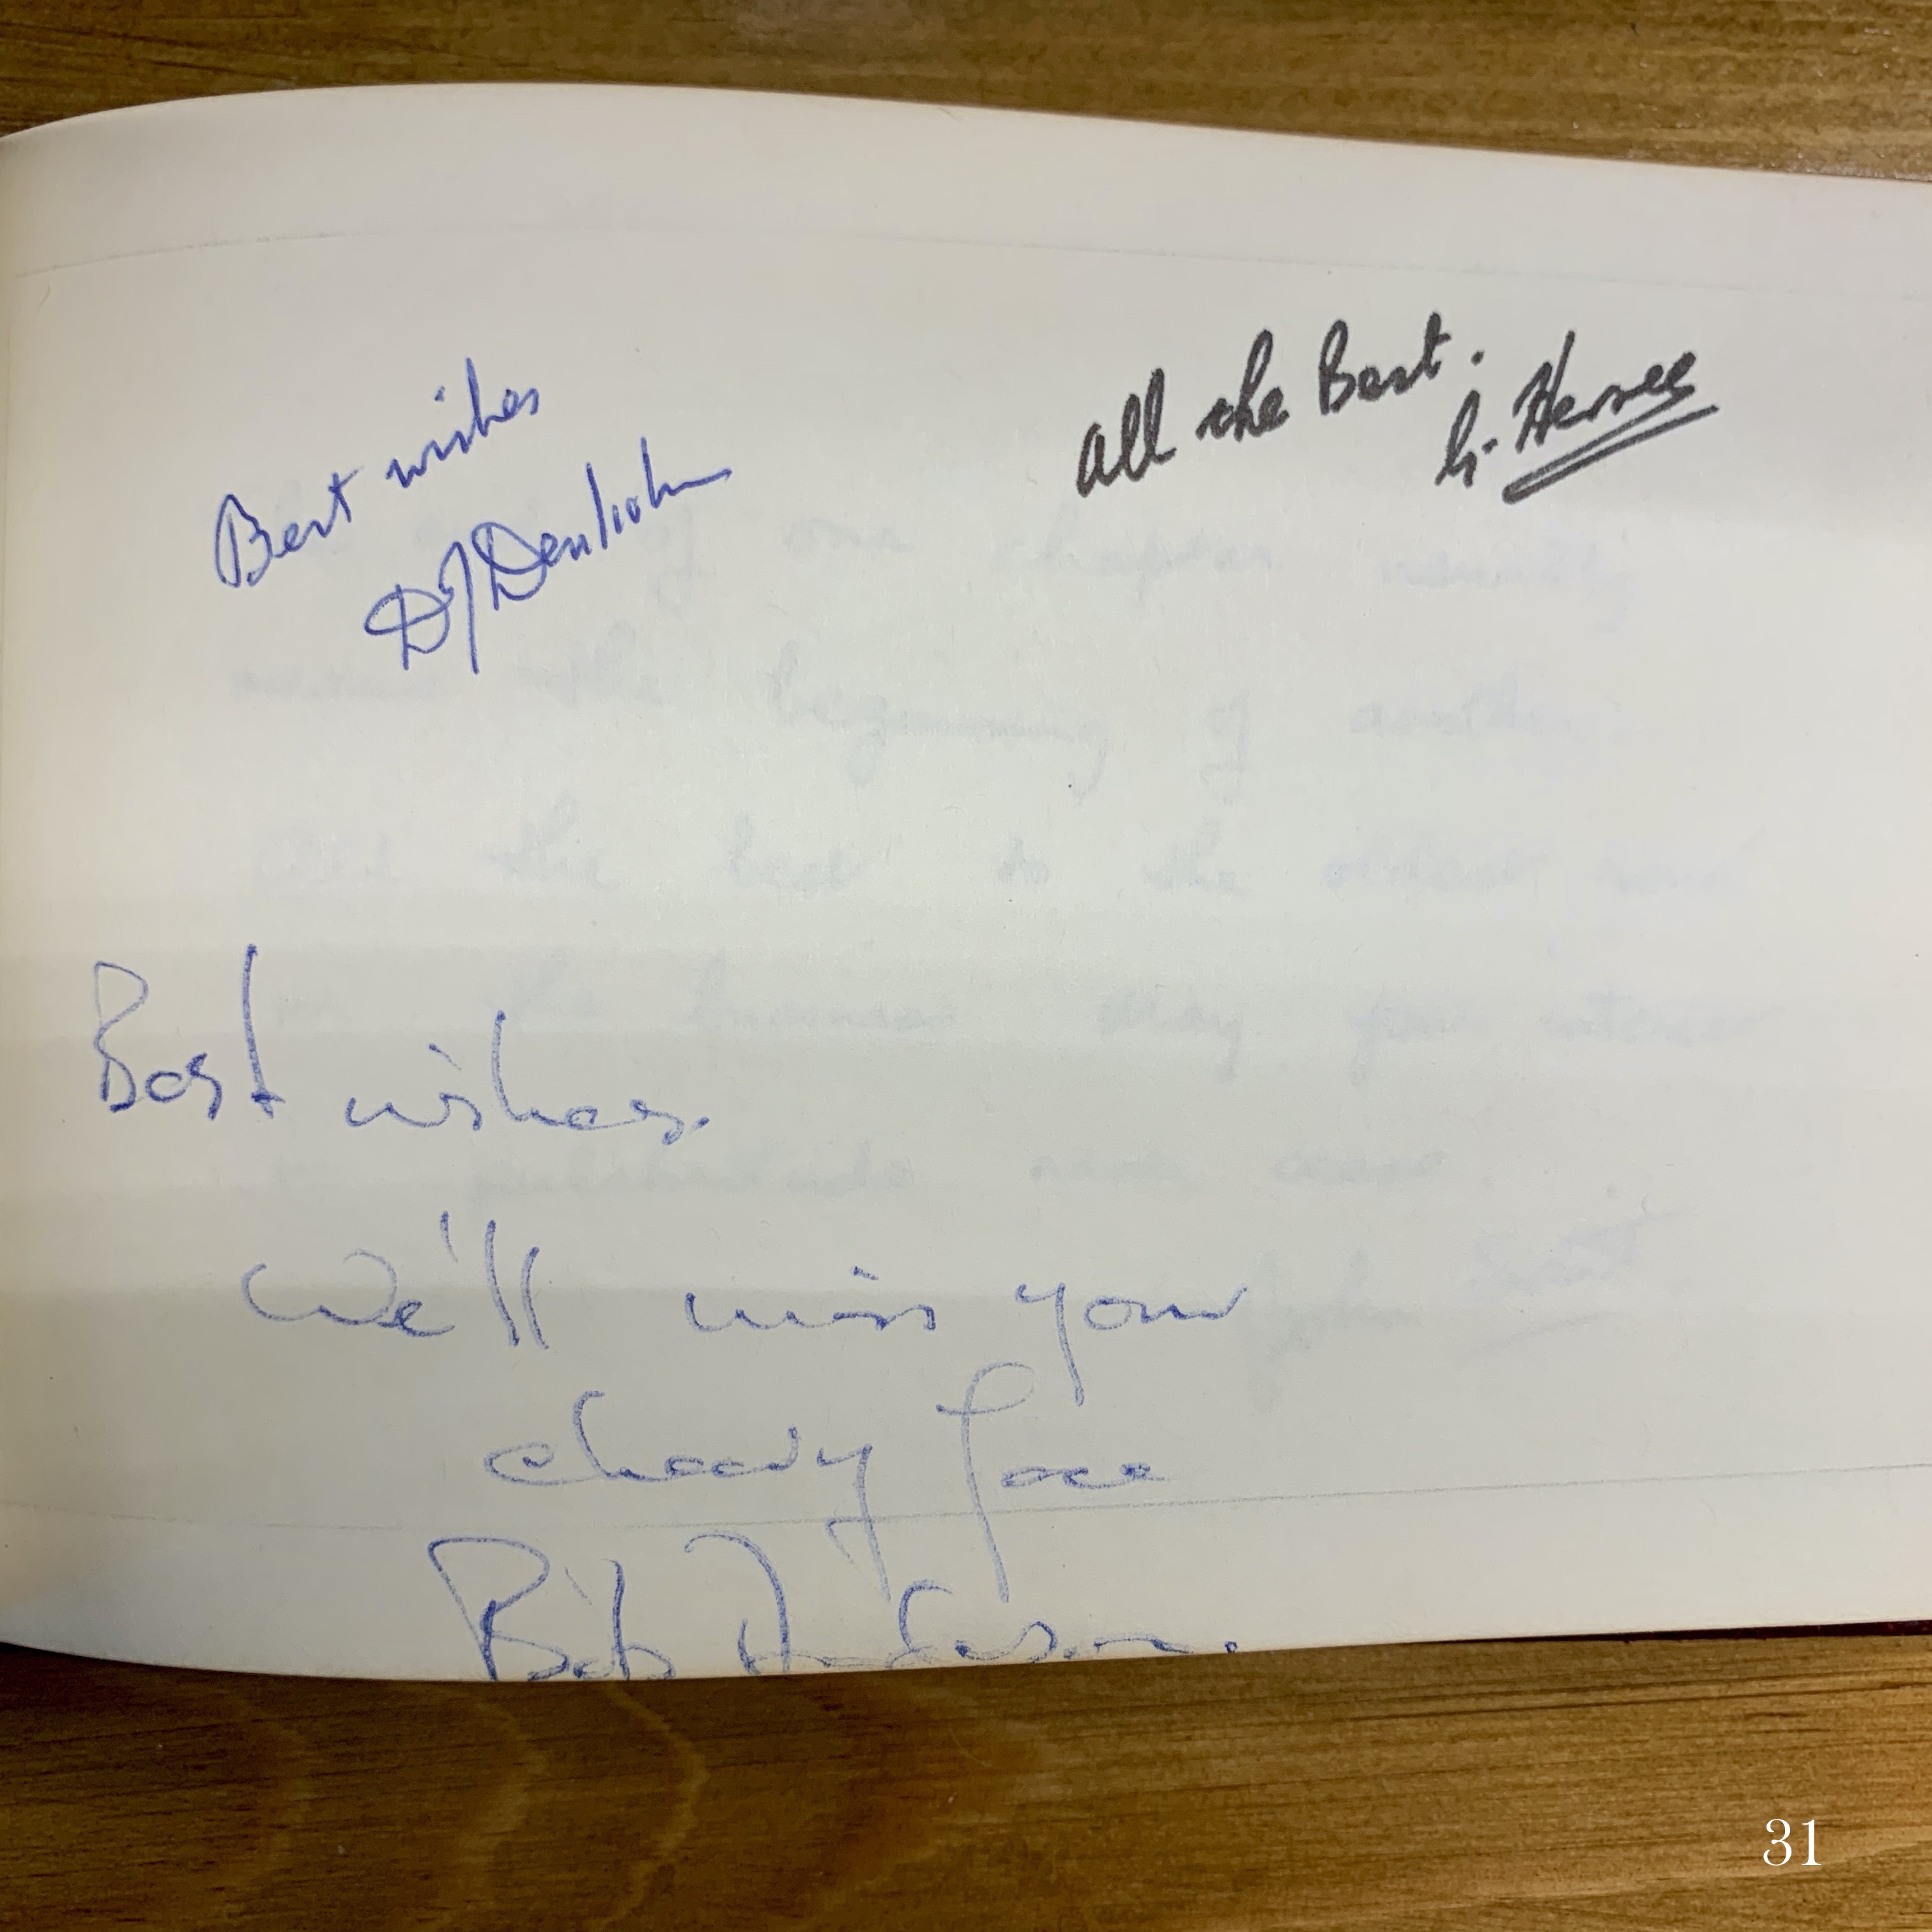 Best wishes
DJ Denholm
All the Best.
G.
Best wishes.
We'll miss your
cheery face
Bob Anderson.
31